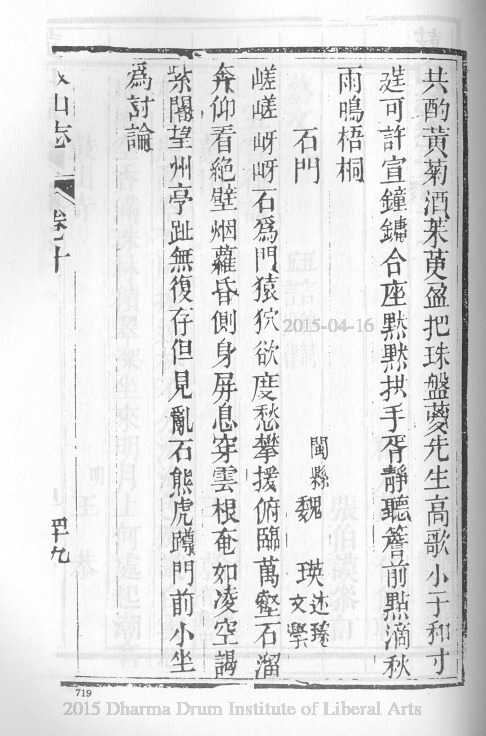 共酌黃菊酒茱萸盈把珠盤薆先生高歌小子和寸
莛可許宣鐘鏞合座默默拱手胥靜聽簷前點滴秋
雨鳴梧桐
石門
閩縣魏 瑛述臻文學
嵯嵯岈岈石爲門猿狖欲度愁攀援俯臨萬壑石溜
奔仰看絶壁烟蘿昏側身屏息穿雲根奄如凌空謁
紫閽望州亭趾無復存但見亂石熊虎蹲門前小坐
爲討論
山志 卷十 四十九
719
2015-04-16
2015 Dharma Drum Institute of Liberal Arts